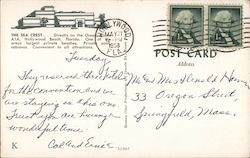 THE SEA CREST Directly on the Ocean
A1A, Hollywood Beach, Florida. One of
areas largest private beaches.
Convenient to all attractions.
HOLLYWOOD
MAY
1958
FLA.
POST CARD
Address
Tuesday
They reserved this hotel
for the convention and we
are staying on this one
Trust you are having
wonderful time
Cal and Ernie
Mr and Mrs Arnold
33 Oregon Street,
Springfield, Mass.
K